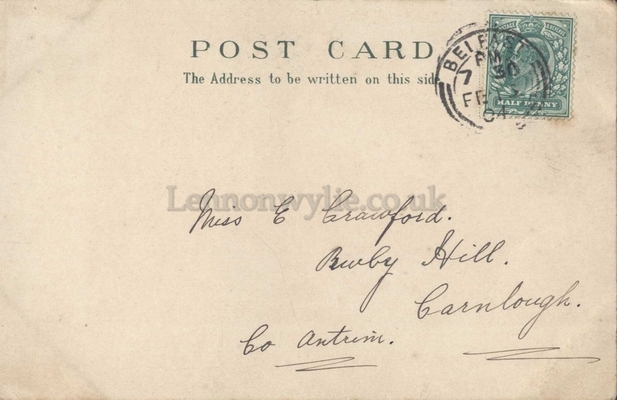 POST CARD
The Address to be written on this side
BELFAST
PM
7 30
FE
04
HALFPENNY
Lennonwylie.co.uk
Miss E Crawford.
Hill.
Carnlough.
Co Antrim.